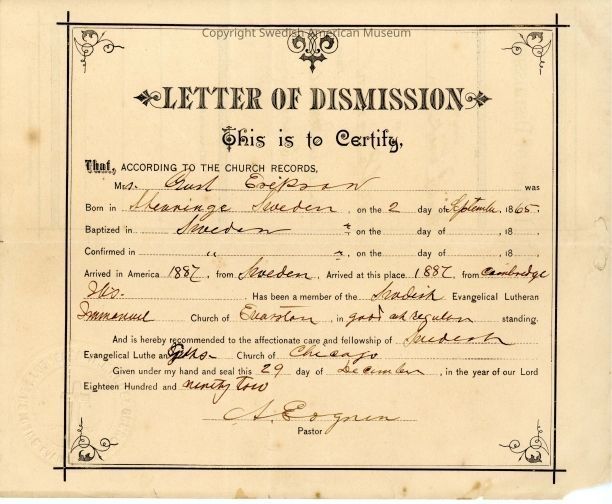 Copyright Swedish American Museum
LETTER OF DISMISSION
This is to Certify,
That, ACCORDING TO THE CHURCH RECORDS,
Mrs. Gust Erikson was
Born in Sweden, on the 2 day of September, 1865.
Baptized in Sweden " , on the day of , 18
Confirmed in " " , on the day of , 18
Arrived in America 1887, from Sweden, Arrived at this place 1887, from Cambredge
Ills. Has been a member of the Svedish Evangelical Lutheran
Immanuel Church of Evanston, in good and regular standing.
And is hereby recommended to the affectionate care and fellowship of Swedish
Evangelical Lutheran Church of Chicago
Given under my hand and seal this 29 day of December, in the year of our Lord
Eighteen Hundred and ninety two
A.
Pastor